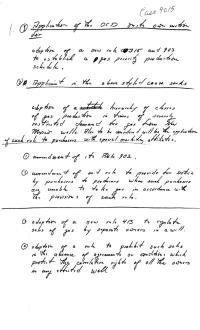 Case 9015
1. ① Application of the OCD on its own motion for
adoption of a new rule 315 and 903
to establish a gas priority production
schedule.
② Applicant in the above styled cause seeks
adoption of a hierarchy of classes
of gas production in times of severely
restricted demand for gas from New
Mexico wells. Also to be considered will be the application
of such rule to producers with special marketing attributes.
① amendment of its Rule 902.
② amendment of said rule to provide for notice
by purchasers to producers when such purchasers
are unable to take gas in accordance with
the provisions of such rule.
① adoption of a new rule 413 to regulate
sales of gas by separate owners in a well.
② adoption of a rule to prohibit such sales
in the absence of agreements or conditions which
protect the correlative rights of all the owners
in any affected well.